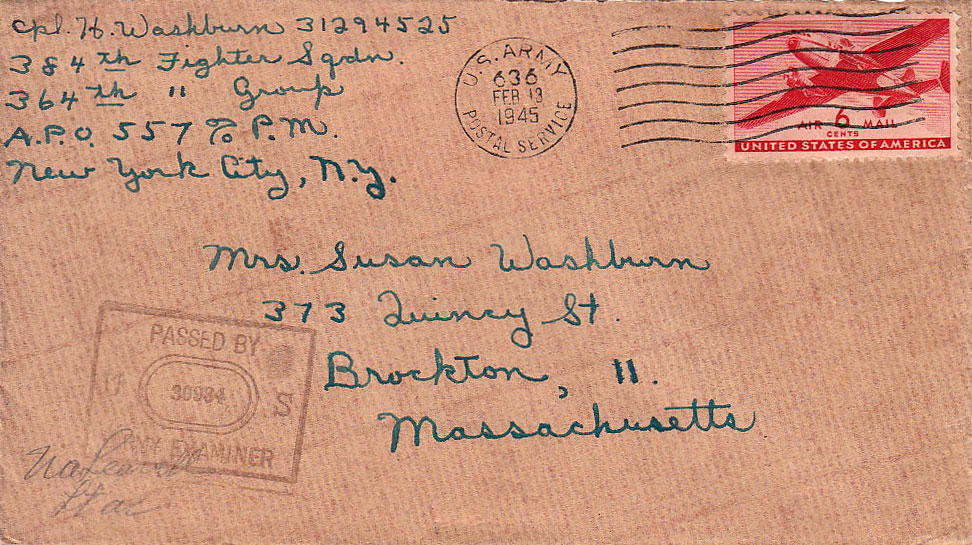 Cpl. H. Washburn 31294525
384th Fighter Sqdn.
364th " Group
A.P.O. 557 % P.M.
New York City, N.Y.
U.S. ARMY
636
FEB 13
1945
POSTAL SERVICE
AIR 6 MAIL
CENTS
UNITED STATES OF AMERICA
Mrs. Susan Washburn
373 Quincy St.
Brockton, 11.
Massachusetts
PASSED BY
U 30984 S
ARMY EXAMINER